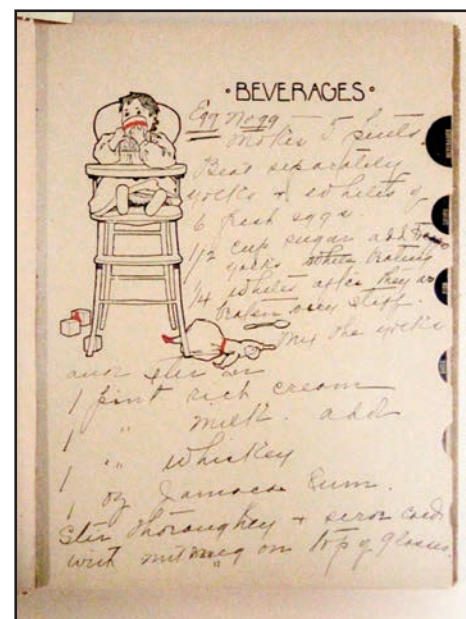 • BEVERAGES •
Egg Nogg
Makes 5 pints.
Beat separately
yolks + whites of
6 fresh eggs.
1/2 cup sugar add to
yolks when beating
1/4 whites after they are
beaten very stiff.
Mix the yolks
and stir in
1 pint rich cream
1 " milk. add
1 " whiskey
1 oz Jamaca Rum.
Stir thoroughly + serve cold
with nutmeg on top of glasses.